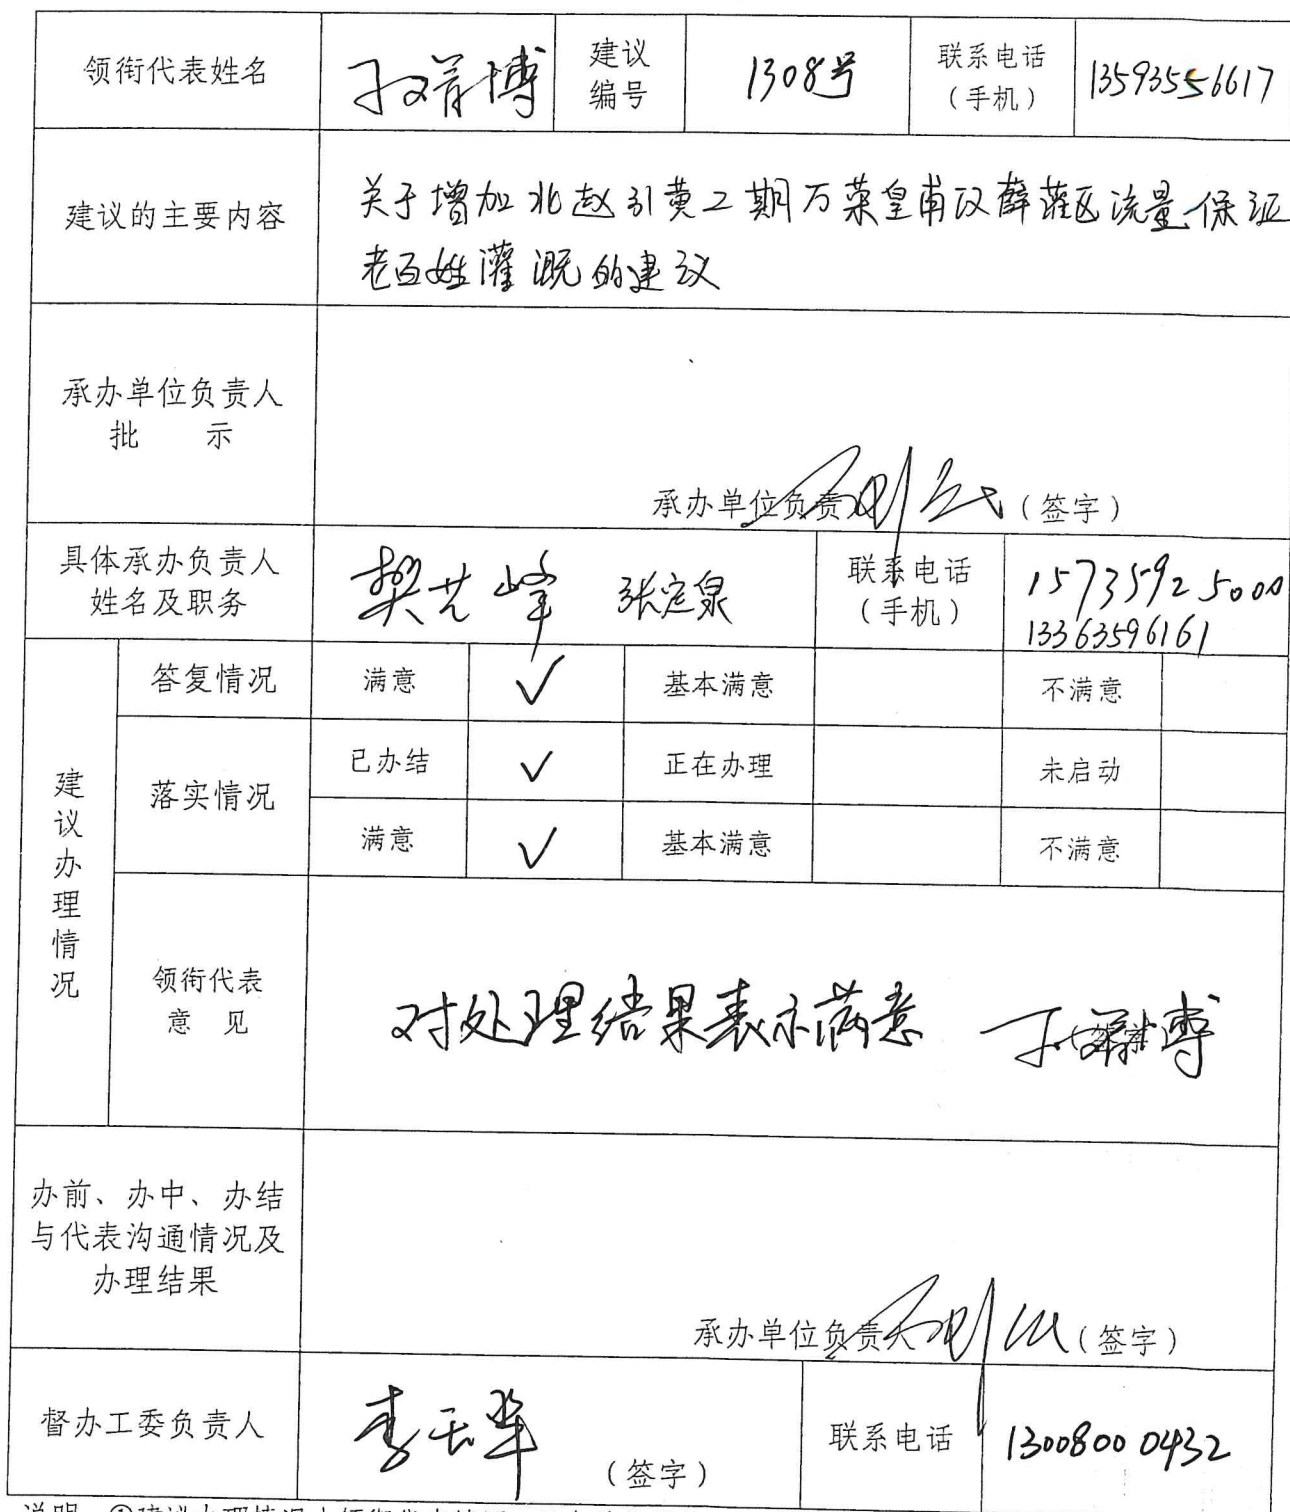 领衔代表姓名
建议编号
1308号
联系电话（手机）
13593556617
建议的主要内容
关于增加北赵引黄二期万荣皇甫汉薛灌区流量保证
老百姓灌溉的建议
承办单位负责人
批 示
承办单位负责人
（签字）
具体承办负责人
姓名及职务
张定泉
联系电话
（手机）
15735925000
13363596161
建议办理情况
答复情况
满意 ✓ 基本满意 不满意
落实情况
已办结 ✓ 正在办理 未启动
满意 ✓ 基本满意 不满意
领衔代表
意 见
对处理结果表示满意
办前、办中、办结
与代表沟通情况及
办理结果
承办单位负责人
（签字）
督办工委负责人
（签字）
联系电话
13008000432